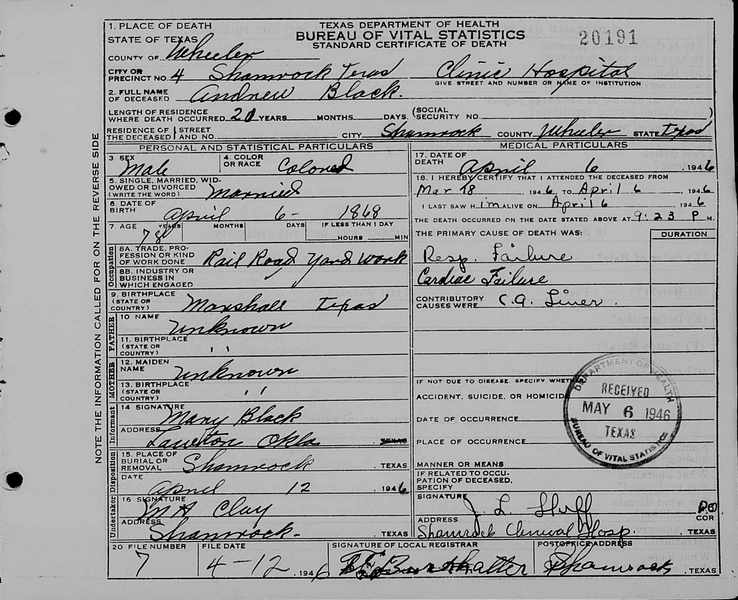 NOTE THE INFORMATION CALLED FOR ON THE REVERSE SIDE
TEXAS DEPARTMENT OF HEALTH
BUREAU OF VITAL STATISTICS
STANDARD CERTIFICATE OF DEATH
20191
1. PLACE OF DEATH
STATE OF TEXAS
COUNTY OF Wheeler
CITY OR PRECINCT NO. 4 Shamrock Texas Clinic Hospital
GIVE STREET AND NUMBER OR NAME OF INSTITUTION
2. FULL NAME OF DECEASED Andrew Black.
LENGTH OF RESIDENCE WHERE DEATH OCCURRED 20 YEARS MONTHS DAYS (SOCIAL SECURITY NO.
RESIDENCE OF THE DECEASED STREET AND NO. CITY Shamrock COUNTY Wheeler STATE Texas
PERSONAL AND STATISTICAL PARTICULARS
3 SEX Male
4. COLOR OR RACE Colored
5. SINGLE, MARRIED, WIDOWED OR DIVORCED (WRITE THE WORD) Married
6 DATE OF BIRTH April 6- 1868
7 AGE YEARS MONTHS DAYS IF LESS THAN 1 DAY
78 HOURS MIN
Occupation
8A. TRADE, PROFESSION OR KIND OF WORK DONE Rail Road Yard Work
8B. INDUSTRY OR BUSINESS IN WHICH ENGAGED
9. BIRTHPLACE (STATE OR COUNTRY) Marshall Texas
FATHER
10 NAME Unknown
11. BIRTHPLACE (STATE OR COUNTRY) ' '
MOTHER
12. MAIDEN NAME Unknown
13. BIRTHPLACE (STATE OR COUNTRY) ' '
Informant
14 SIGNATURE Mary Black
ADDRESS Lawton Okla TEXAS
Disposition
15. PLACE OF BURIAL OR REMOVAL Shamrock , TEXAS
DATE April 12 , 1946
Undertaker
16 SIGNATURE Clay
ADDRESS Shamrock. , TEXAS
MEDICAL PARTICULARS
17. DATE OF DEATH April 6 , 1946
18. I HEREBY CERTIFY THAT I ATTENDED THE DECEASED FROM
Mar 28 1946, TO April 6 , 1946
I LAST SAW Him ALIVE ON April 6 1946
THE DEATH OCCURRED ON THE DATE STATED ABOVE AT 9:23 P M.
THE PRIMARY CAUSE OF DEATH WAS: DURATION
Resp. Failure
Cardiac Failure
CONTRIBUTORY CAUSES WERE C.A. Liver.
IF NOT DUE TO DISEASE, SPECIFY WHETHER
ACCIDENT, SUICIDE, OR HOMICIDE
DATE OF OCCURRENCE
PLACE OF OCCURRENCE
MANNER OR MEANS
IF RELATED TO OCCUPATION OF DECEASED, SPECIFY
DEPARTMENT OF HEALTH
RECEIVED
MAY 6 1946
TEXAS
BUREAU OF VITAL STATISTICS
SIGNATURE J. L.
ADDRESS Shamrock General Hosp. , TEXAS
COR
20 FILE NUMBER 7
FILE DATE 4-12 , 1946
SIGNATURE OF LOCAL REGISTRAR
POSTOFFICE ADDRESS Shamrock , TEXAS